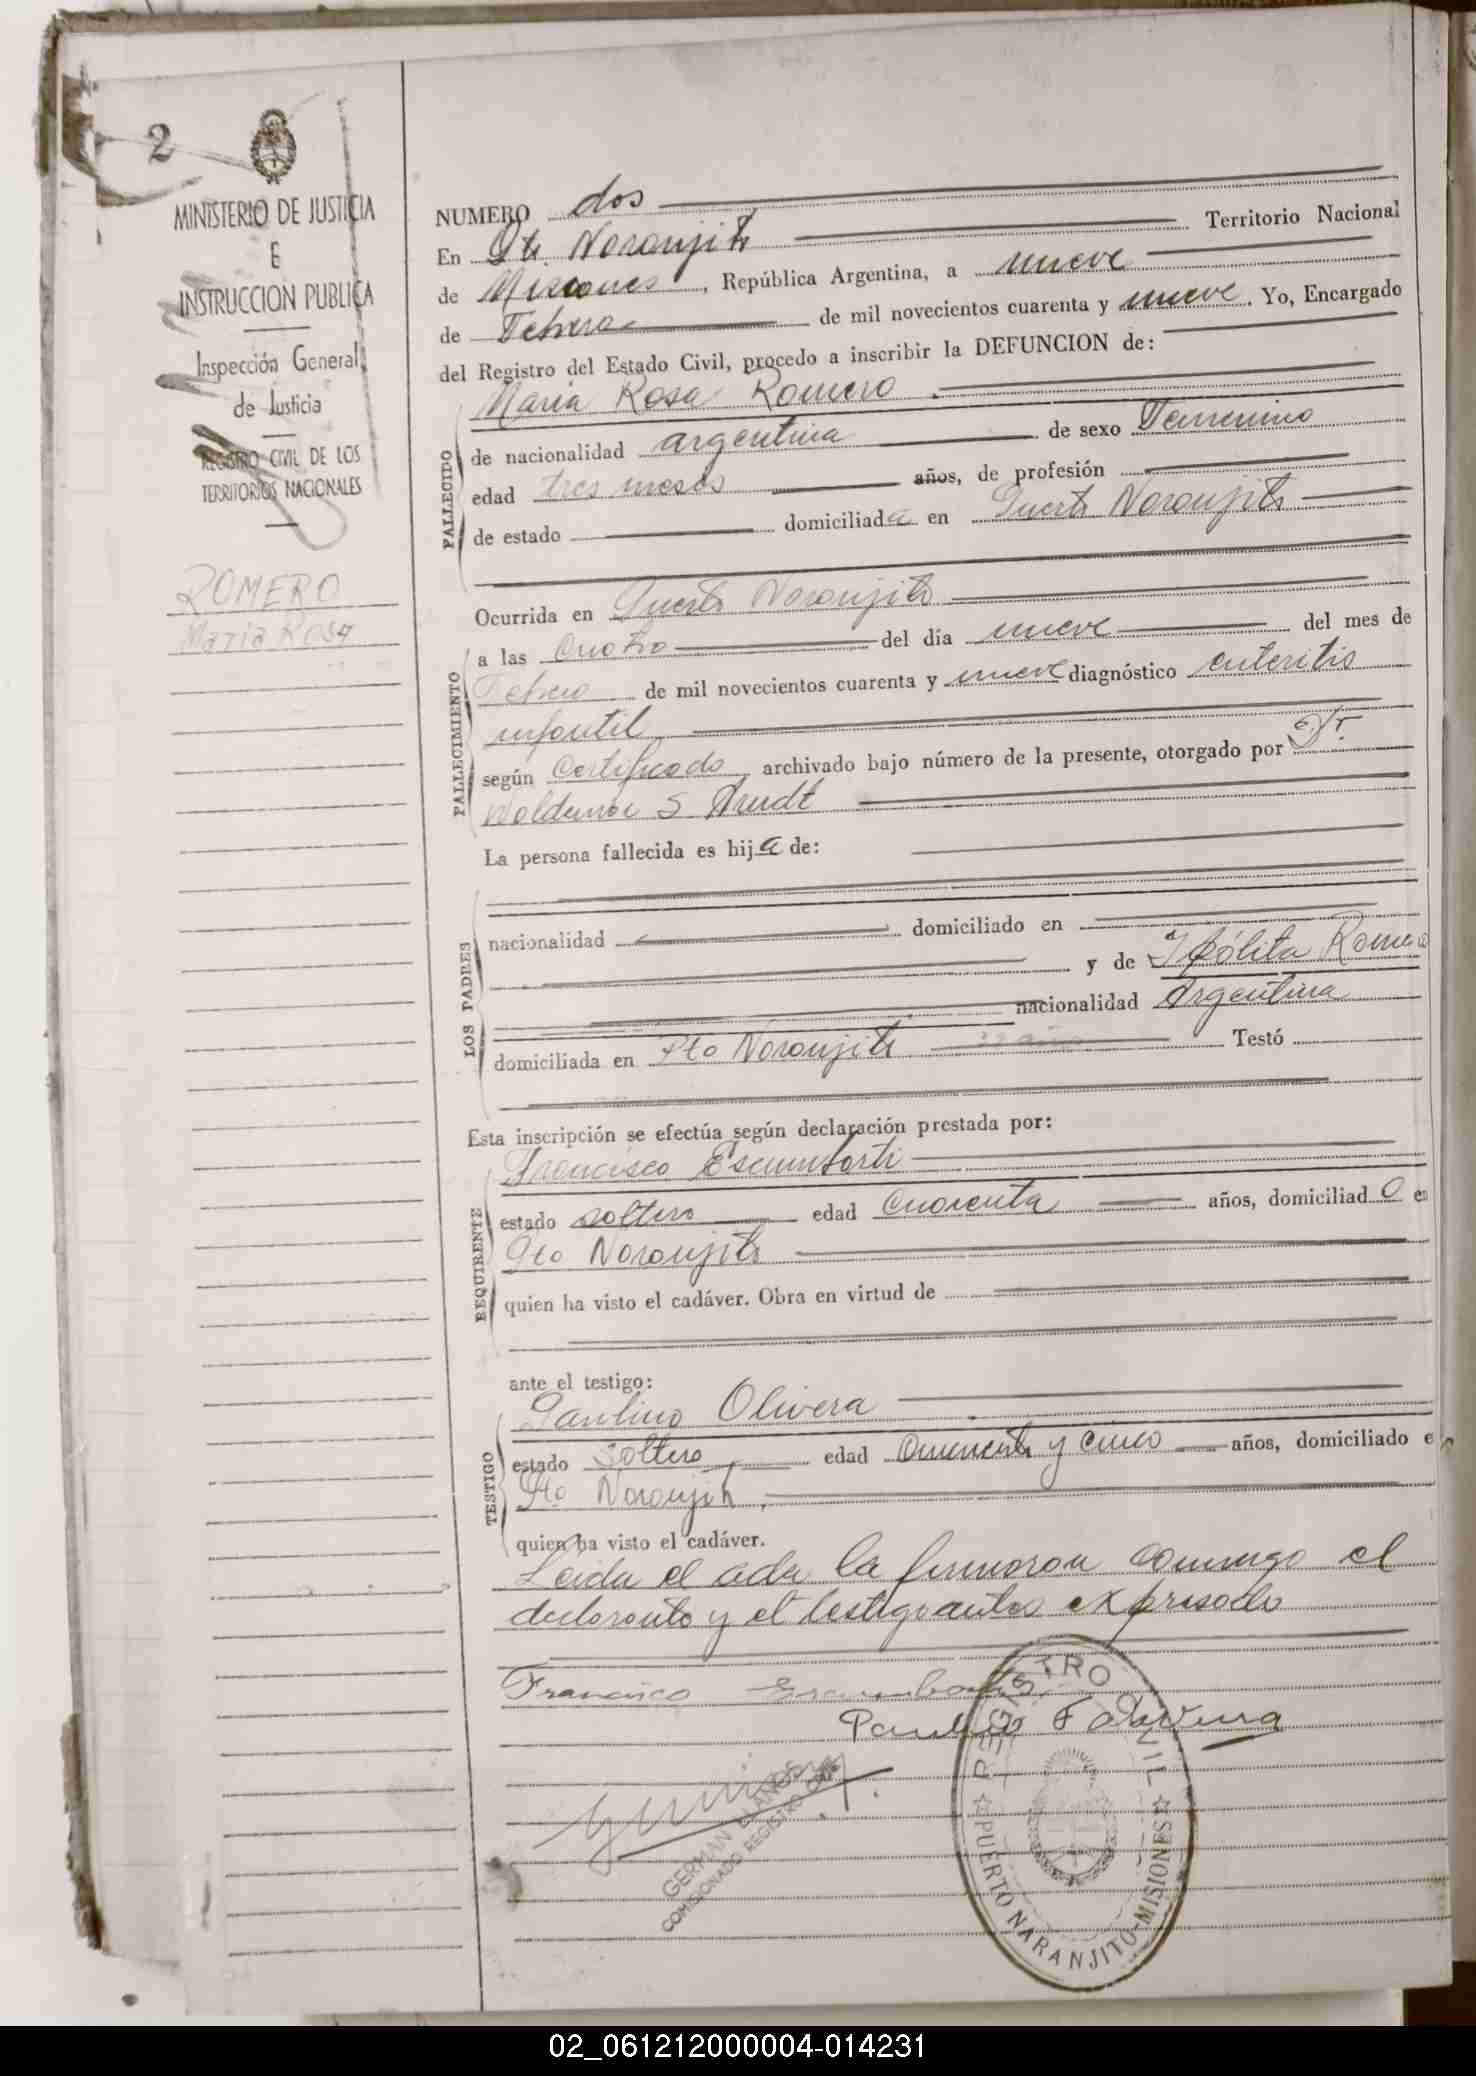 2
MINISTERIO DE JUSTICIA
E
INSTRUCCION PUBLICA
Inspección General
de Justicia
REGISTRO CIVIL DE LOS
TERRITORIOS NACIONALES
ROMERO
Maria Rosa
NUMERO dos
En Pto. Naranjito Territorio Nacional
de Misiones, República Argentina, a nueve
de Febrero de mil novecientos cuarenta y nueve. Yo, Encargado
del Registro del Estado Civil, procedo a inscribir la DEFUNCION de:
FALLECIDO
Maria Rosa Romero.
de nacionalidad argentina de sexo Femenino
edad tres meses años, de profesión
de estado domiciliada en Puerto Naranjito
FALLECIMIENTO
Ocurrida en Puerto Naranjito
a las Cuatro del día nueve del mes de
Febrero de mil novecientos cuarenta y nueve diagnóstico enteritis
infantil
según Certificado archivado bajo número de la presente, otorgado por Dr.
Woldemar S Arndt
La persona fallecida es hija de:
LOS PADRES
nacionalidad domiciliado en
y de Ipólita Romero
nacionalidad Argentina
domiciliada en Pto Naranjito Testó
Esta inscripción se efectúa según declaración prestada por:
REQUIRENTE
Francisco Escumbarti
estado soltero edad Cuarenta años, domiciliado en
Pto Naranjito
quien ha visto el cadáver. Obra en virtud de
ante el testigo:
TESTIGO
Paulino Olivera
estado Soltero edad y cinco años, domiciliado e
Pto Naranjito.
quien ha visto el cadáver.
Leida el acta la firmaron conmigo el
declarante y el expresado
Francisco
GERMAN LLANOS
COMISIONADO REGISTRO CIVIL
REGISTRO CIVIL
PUERTO NARANJITO - MISIONES
02_061212000004-014231